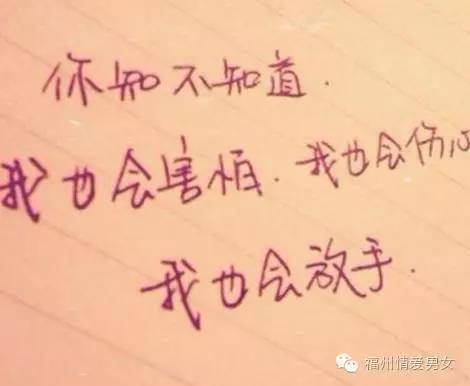 你知不知道.
我也会害怕.我也会伤心
我也会放手.
福州情爱男女